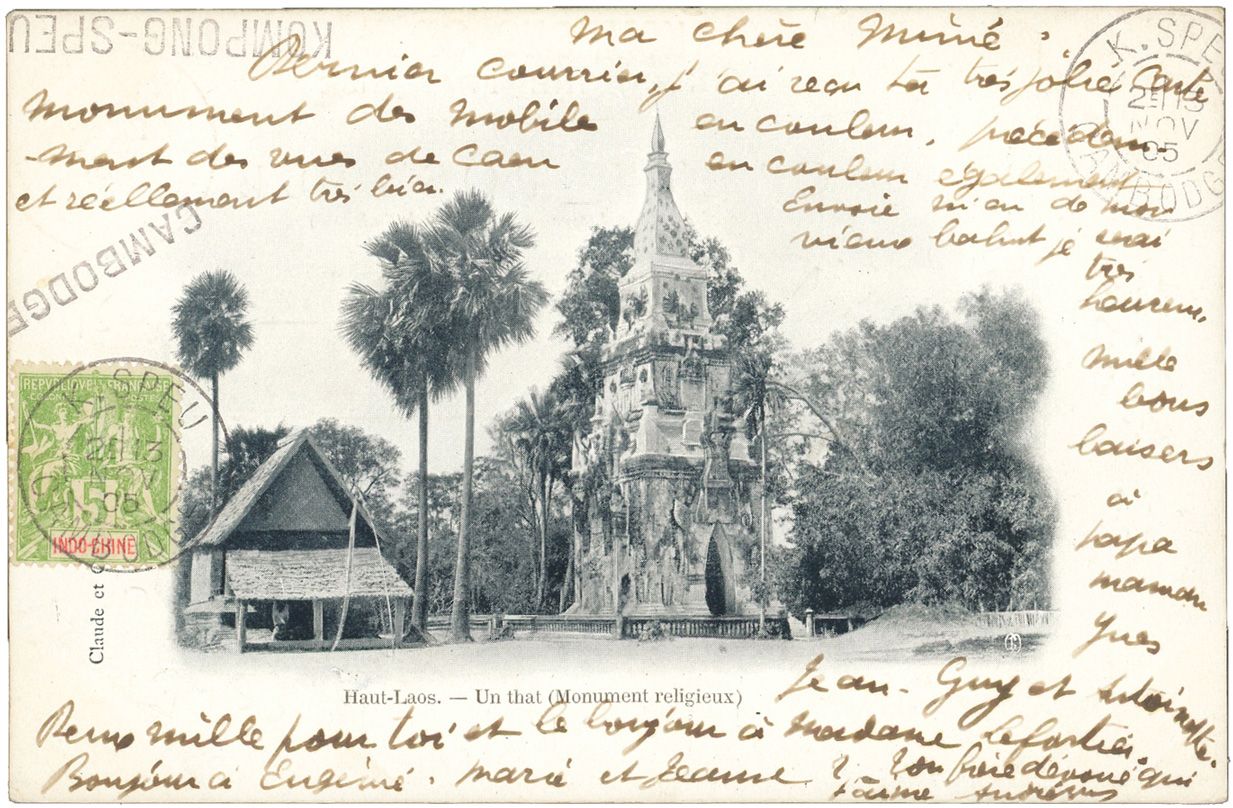 KOMPONG-SPEU
Ma chère Mimé
Dernier courrier, j'ai reçu ta très jolie carte
monument des mobiles en couleur, précédem-
ment des vues de Caen en couleur également
et réellement très bien.
Envoie m'en de mon
vieux bahut je serai
très
heureux,
Mille
bons
baisers
à
papa
maman
Yves
Jean-Guy et
Deux mille pour toi et le bonjour à Madame
Bonjour à Eugénie. Marie et Jeanne
Ton frère dévoué qui
t'aime
CAMBODGE
K. SPEU
2E/13
NOV
05
CAMBODGE
REPUBLIQUE FRANÇAISE
COLONIES POSTES
5
INDO-CHINE
K. SPEU
2E/13
05
CAMBODGE
Claude et C
Haut-Laos. — Un that (Monument religieux)